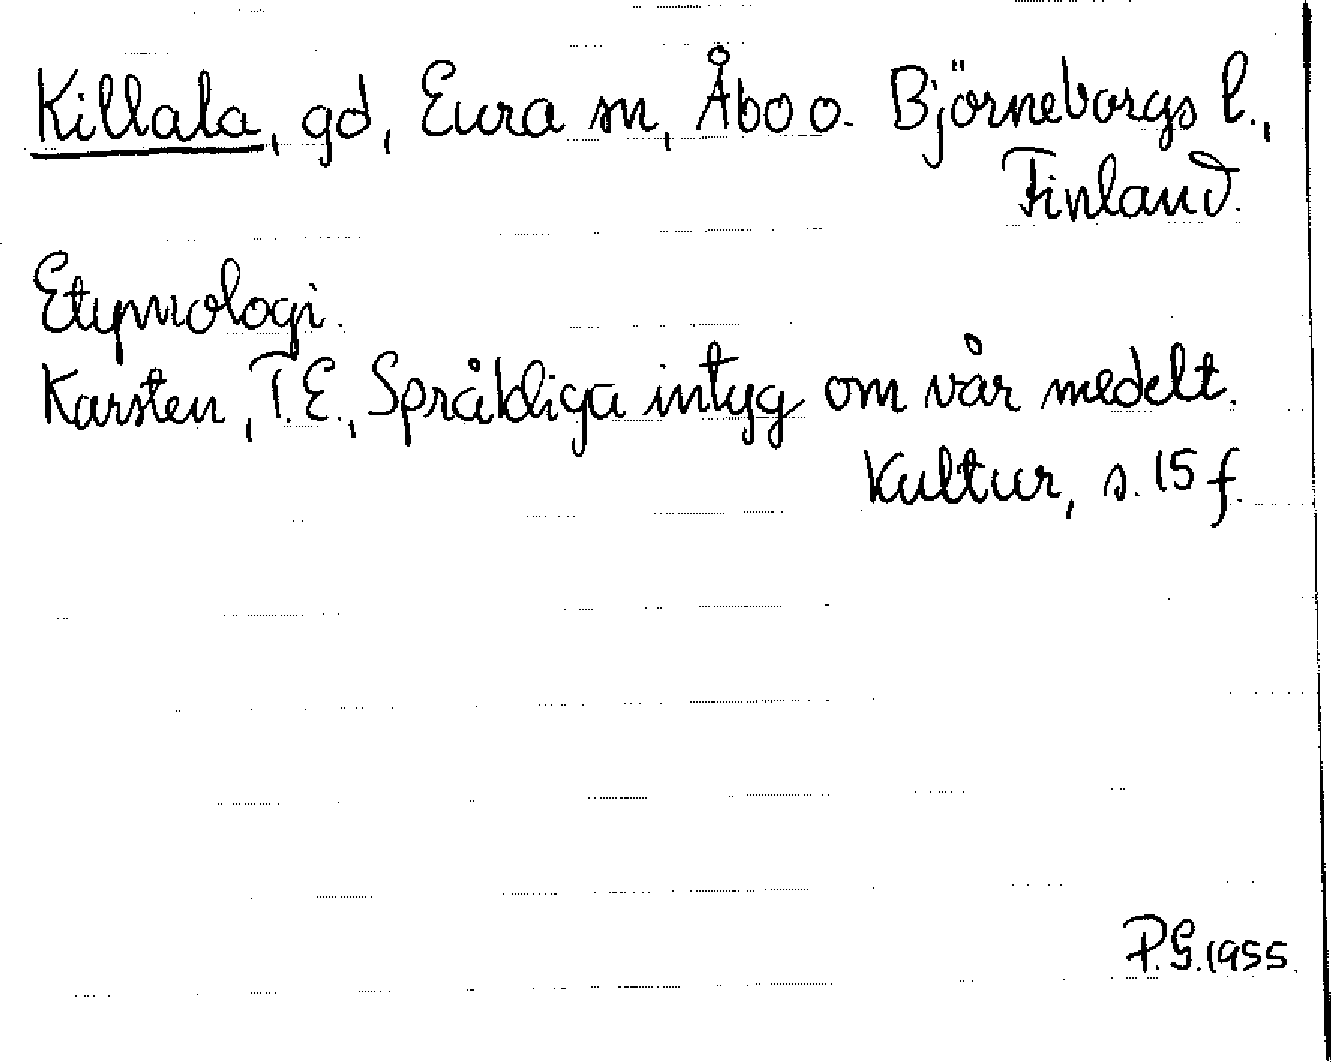 Killala, gd, Eura sn, Åbo o. Björneborgs l.,
Finland.
Etymologi.
Karsten, T.E., Språkliga intyg om vår medelt.
Kultur, s. 15 f.
P.G. 1955.